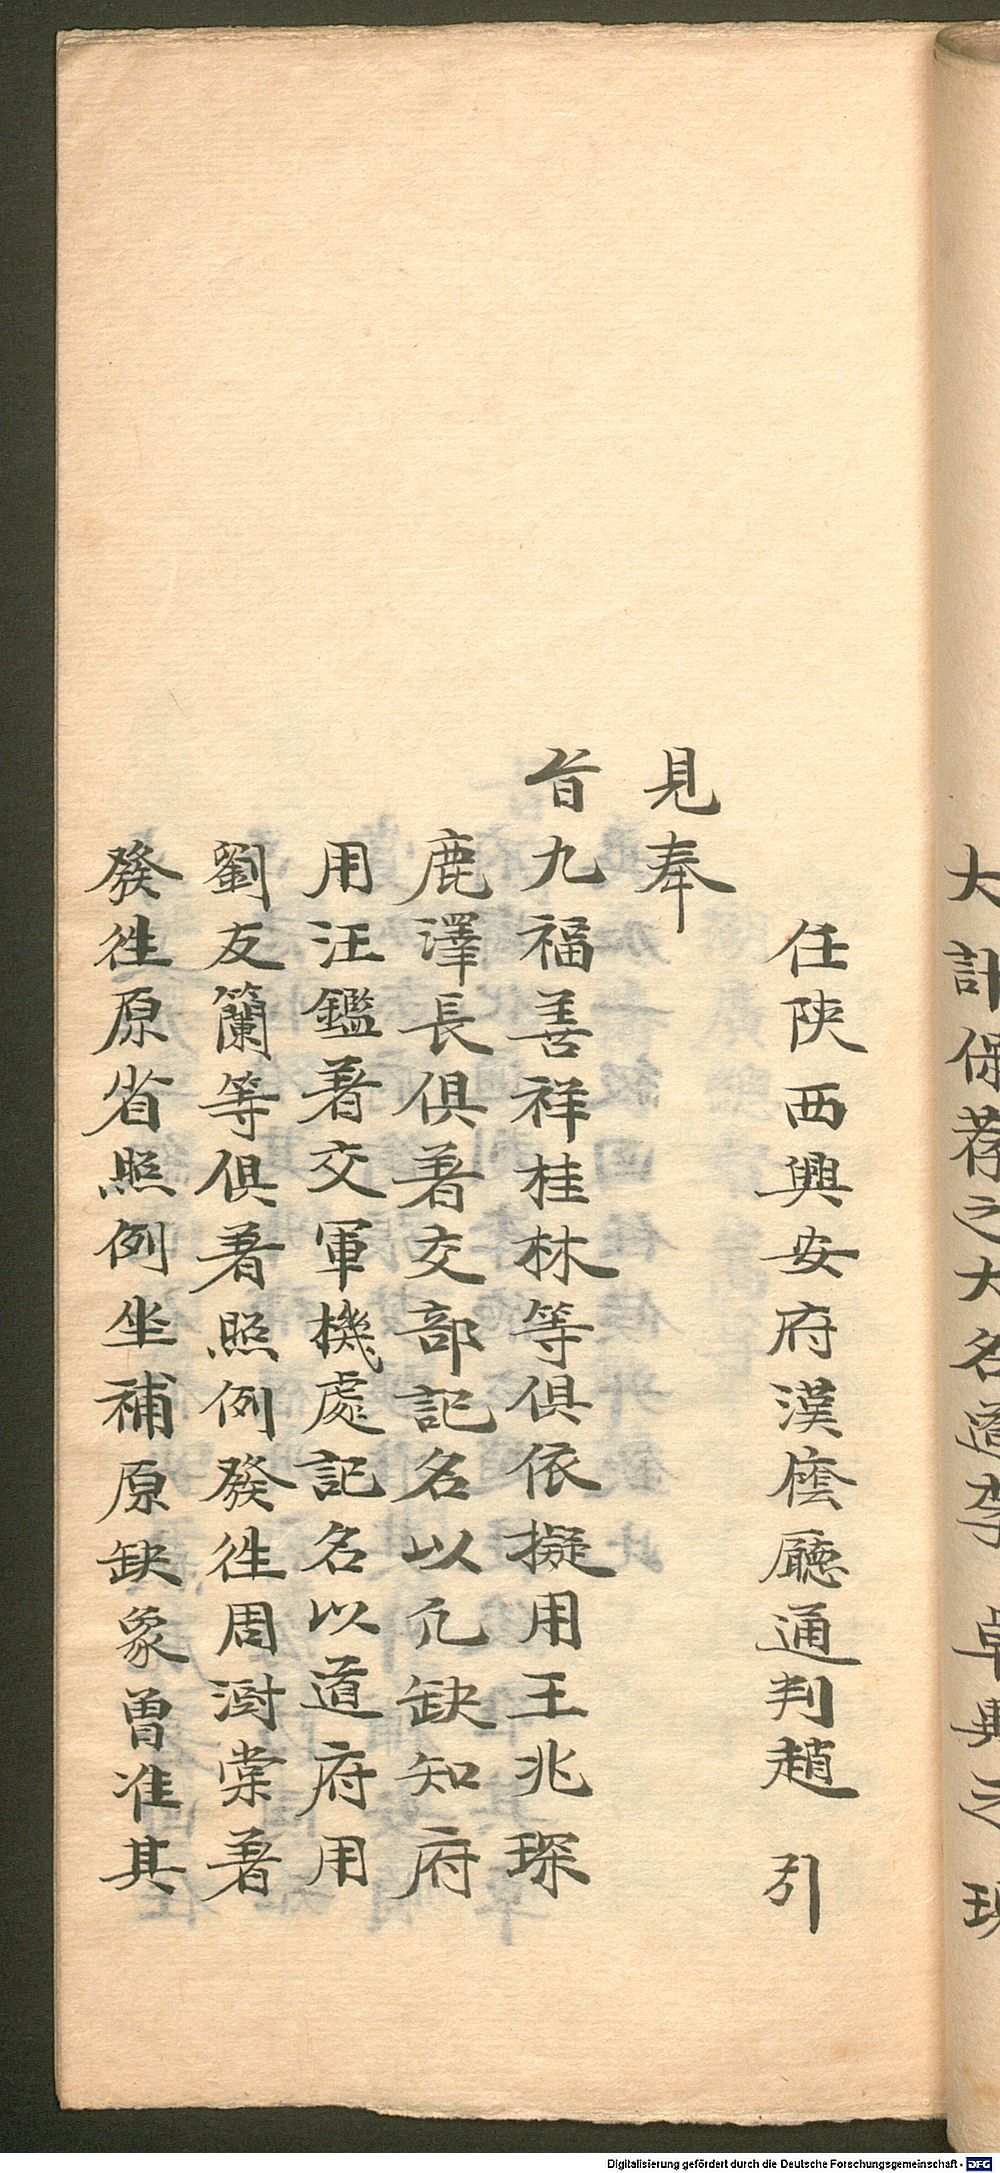 大計保荐之大名道李 卓異之現
任陝西興安府漢陰廳通判趙 引
見奉
旨九福善祥桂林等俱依擬用王兆琛
鹿澤長俱著交部記名以八缺知府
用汪鑑著交軍機處記名以道府用
劉友蘭等俱著照例發徃周澍棠著
發徃原省照例坐補原缺象曾准其
Digitalisierung gefördert durch die Deutsche Forschungsgemeinschaft - DFG